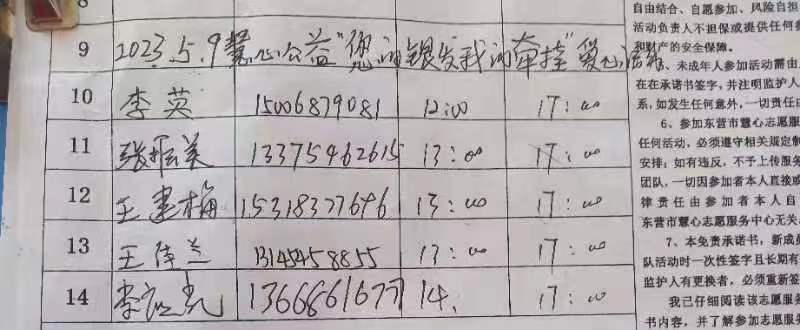 8
9 2023.5.9慧心公益"您的银发我的牵挂"爱心活动
10 李英 15006879081 12:00 17:00
11 张振美 13375462615 13:00 17:00
12 王建梅 15318377696 13:00 17:00
13 王佳兰 13145458855 13:00 17:00
14 李 13666661677 14. 17:00
自由结合、自愿参加、风险自担
活动负责人不担保或提供任何
和财产的安全保障。
5、未成年人参加活动需由
在在承诺书签字,并注明监护人
系,如发生任何意外,一切责任
6、参加东营市慧心志愿服
任何活动,必须遵守相关规定制
安排;如有违反,不予上传服务
团队,一切因参加者本人直接或
律责任由参加者本人自
东营市慧心志愿服务中心无关
7、本免责承诺书,新成
队活动时一次性签字且长期有
监护人有更换者,必须重新签
我已仔细阅读该志愿服
书内容,并了解参加志愿服务